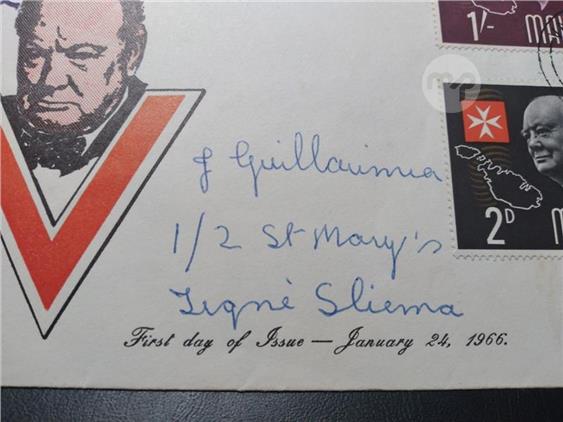 1/- MA
J Guillaumia
1/2 St Mary's
Tigné Sliema
2D M
First day of Issue — January 24, 1966.